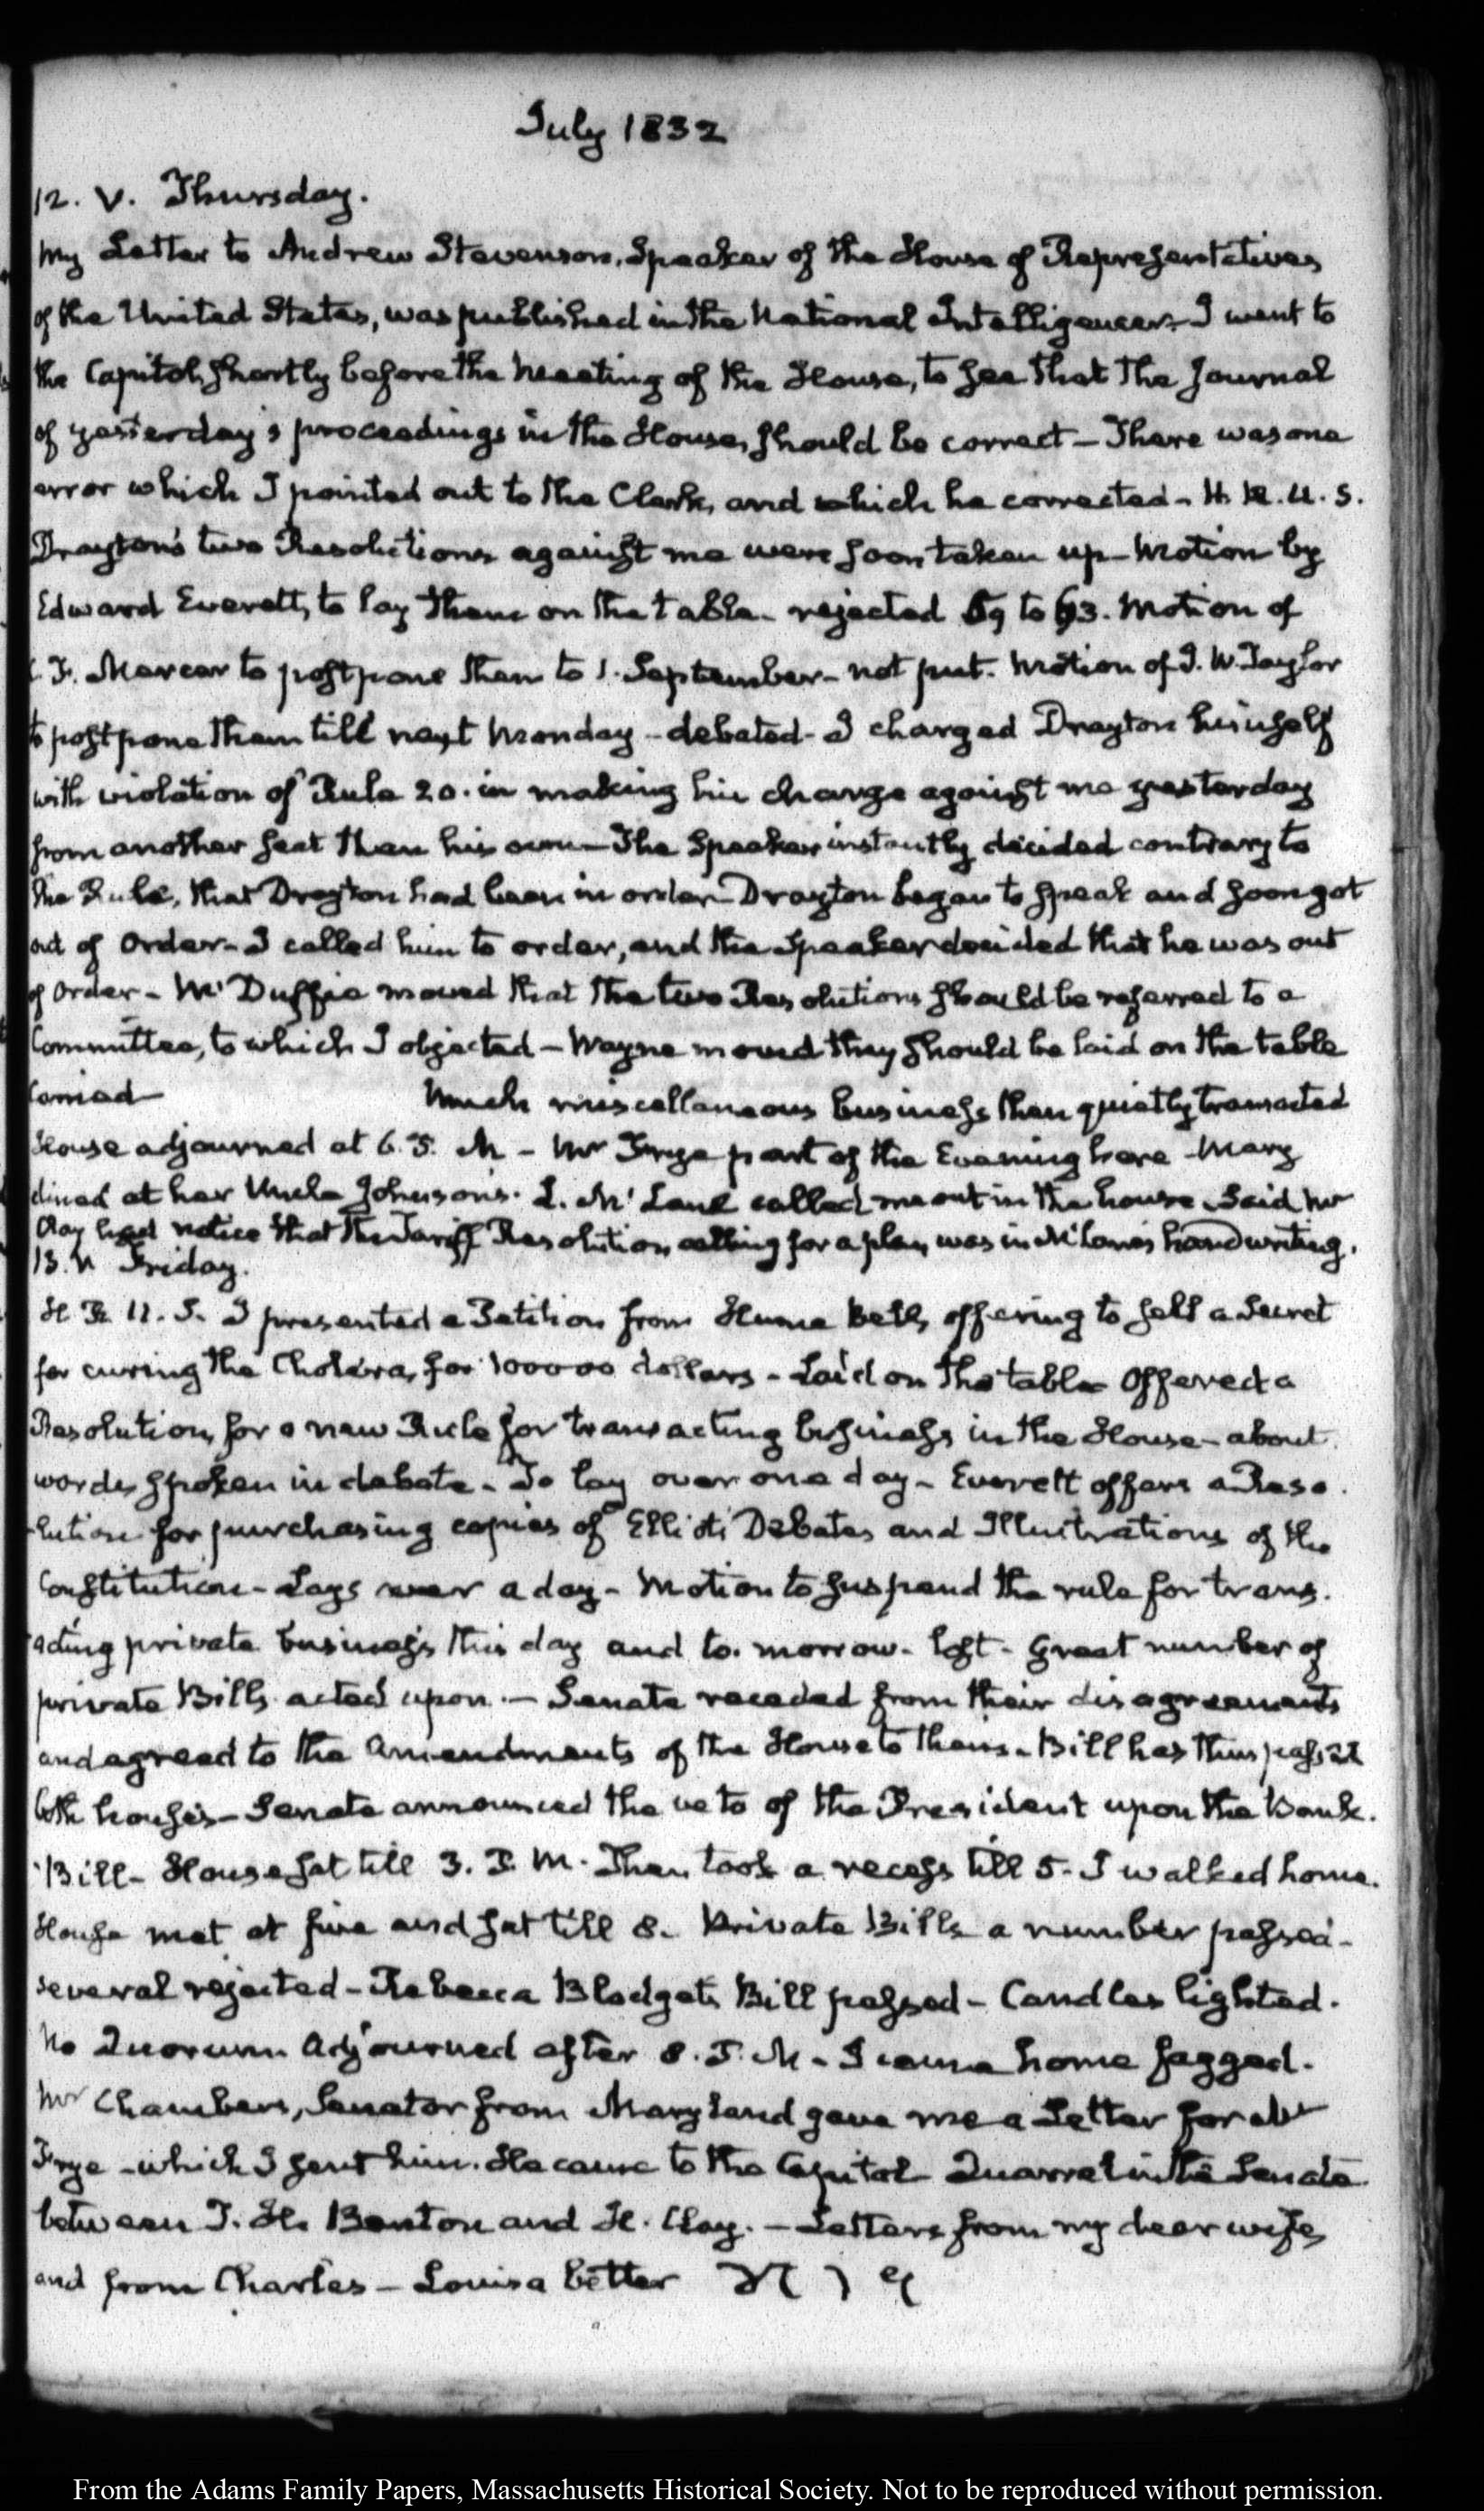 July 1832
12. V. Thursday.
My Letter to Andrew Stevenson, Speaker of the House of Representatives
of the United States, was published in the National Intelligencer. I went to
the Capitol, shortly before the Meeting of the House, to see that the Journal
of yesterday's proceedings in the House, should be correct — There was one
error which I pointed out to the Clerk, and which he corrected - H. R. U. S.
Drayton's two Resolutions against me were soon taken up — Motion by
Edward Everett, to lay them on the table - rejected 89 to 63. Motion of
C. F. Mercer to postpone them to 1. September - not put. Motion of J. W. Taylor
to postpone them till next Monday - debated - I charged Drayton himself
with violation of Rule 20. in making his charge against me yesterday
from another seat than his own — The Speaker instantly decided contrary to
the Rule, that Drayton had been in order — Drayton began to speak and soon got
out of order - I called him to order, and the Speaker decided that he was out
of order - McDuffie moved that the two Resolutions should be referred to a
Committee, to which I objected — Wayne moved they should be laid on the table
Carried — Much miscellaneous business then quietly transacted
House adjourned at 6. P. M - Mr Frye part of the Evening here - Mary
dined at her Uncle Johnson's. L. McLane called me out in the house. Said Mr
Clay had notice that the Tariff Resolution calling for a plan was in McLane's handwriting.
13. Friday.
H. R. U. S. I presented a Petition from Hume Bell, offering to sell a Secret
for curing the Cholera, for 100000 dollars - Laid on the table Offered a
Resolution, for a new Rule for transacting business in the House - about
words spoken in debate. To lay over one day - Everett offers a Reso
lution for purchasing copies of Elliot's Debates and Illustrations of the
Constitution - Lays over a day - Motion to suspend the rule for trans.
acting private business this day and to-morrow - lost - Great number of
private Bills acted upon. — Senate receded from their disagreements
and agreed to the Amendments of the House to theirs. Bill has thus passed
both houses — Senate announced the veto of the President upon the Bank.
Bill - House sat till 3. P. M. Then took a recess till 5. I walked home.
House met at five and sat till 8. Private Bills a number passed -
several rejected - Rebecca Blodget's Bill passed - Candles lighted.
No Quorum Adjourned after 8. P. M - I came home fagged.
Mr Chambers, Senator from Maryland gave me a Letter for Mr
Frye - which I sent him. He came to the Capitol Quarrel in the Senate
between T. H. Benton and H. Clay. — Letters from my dear wife,
and from Charles — Louisa better
From the Adams Family Papers, Massachusetts Historical Society. Not to be reproduced without permission.